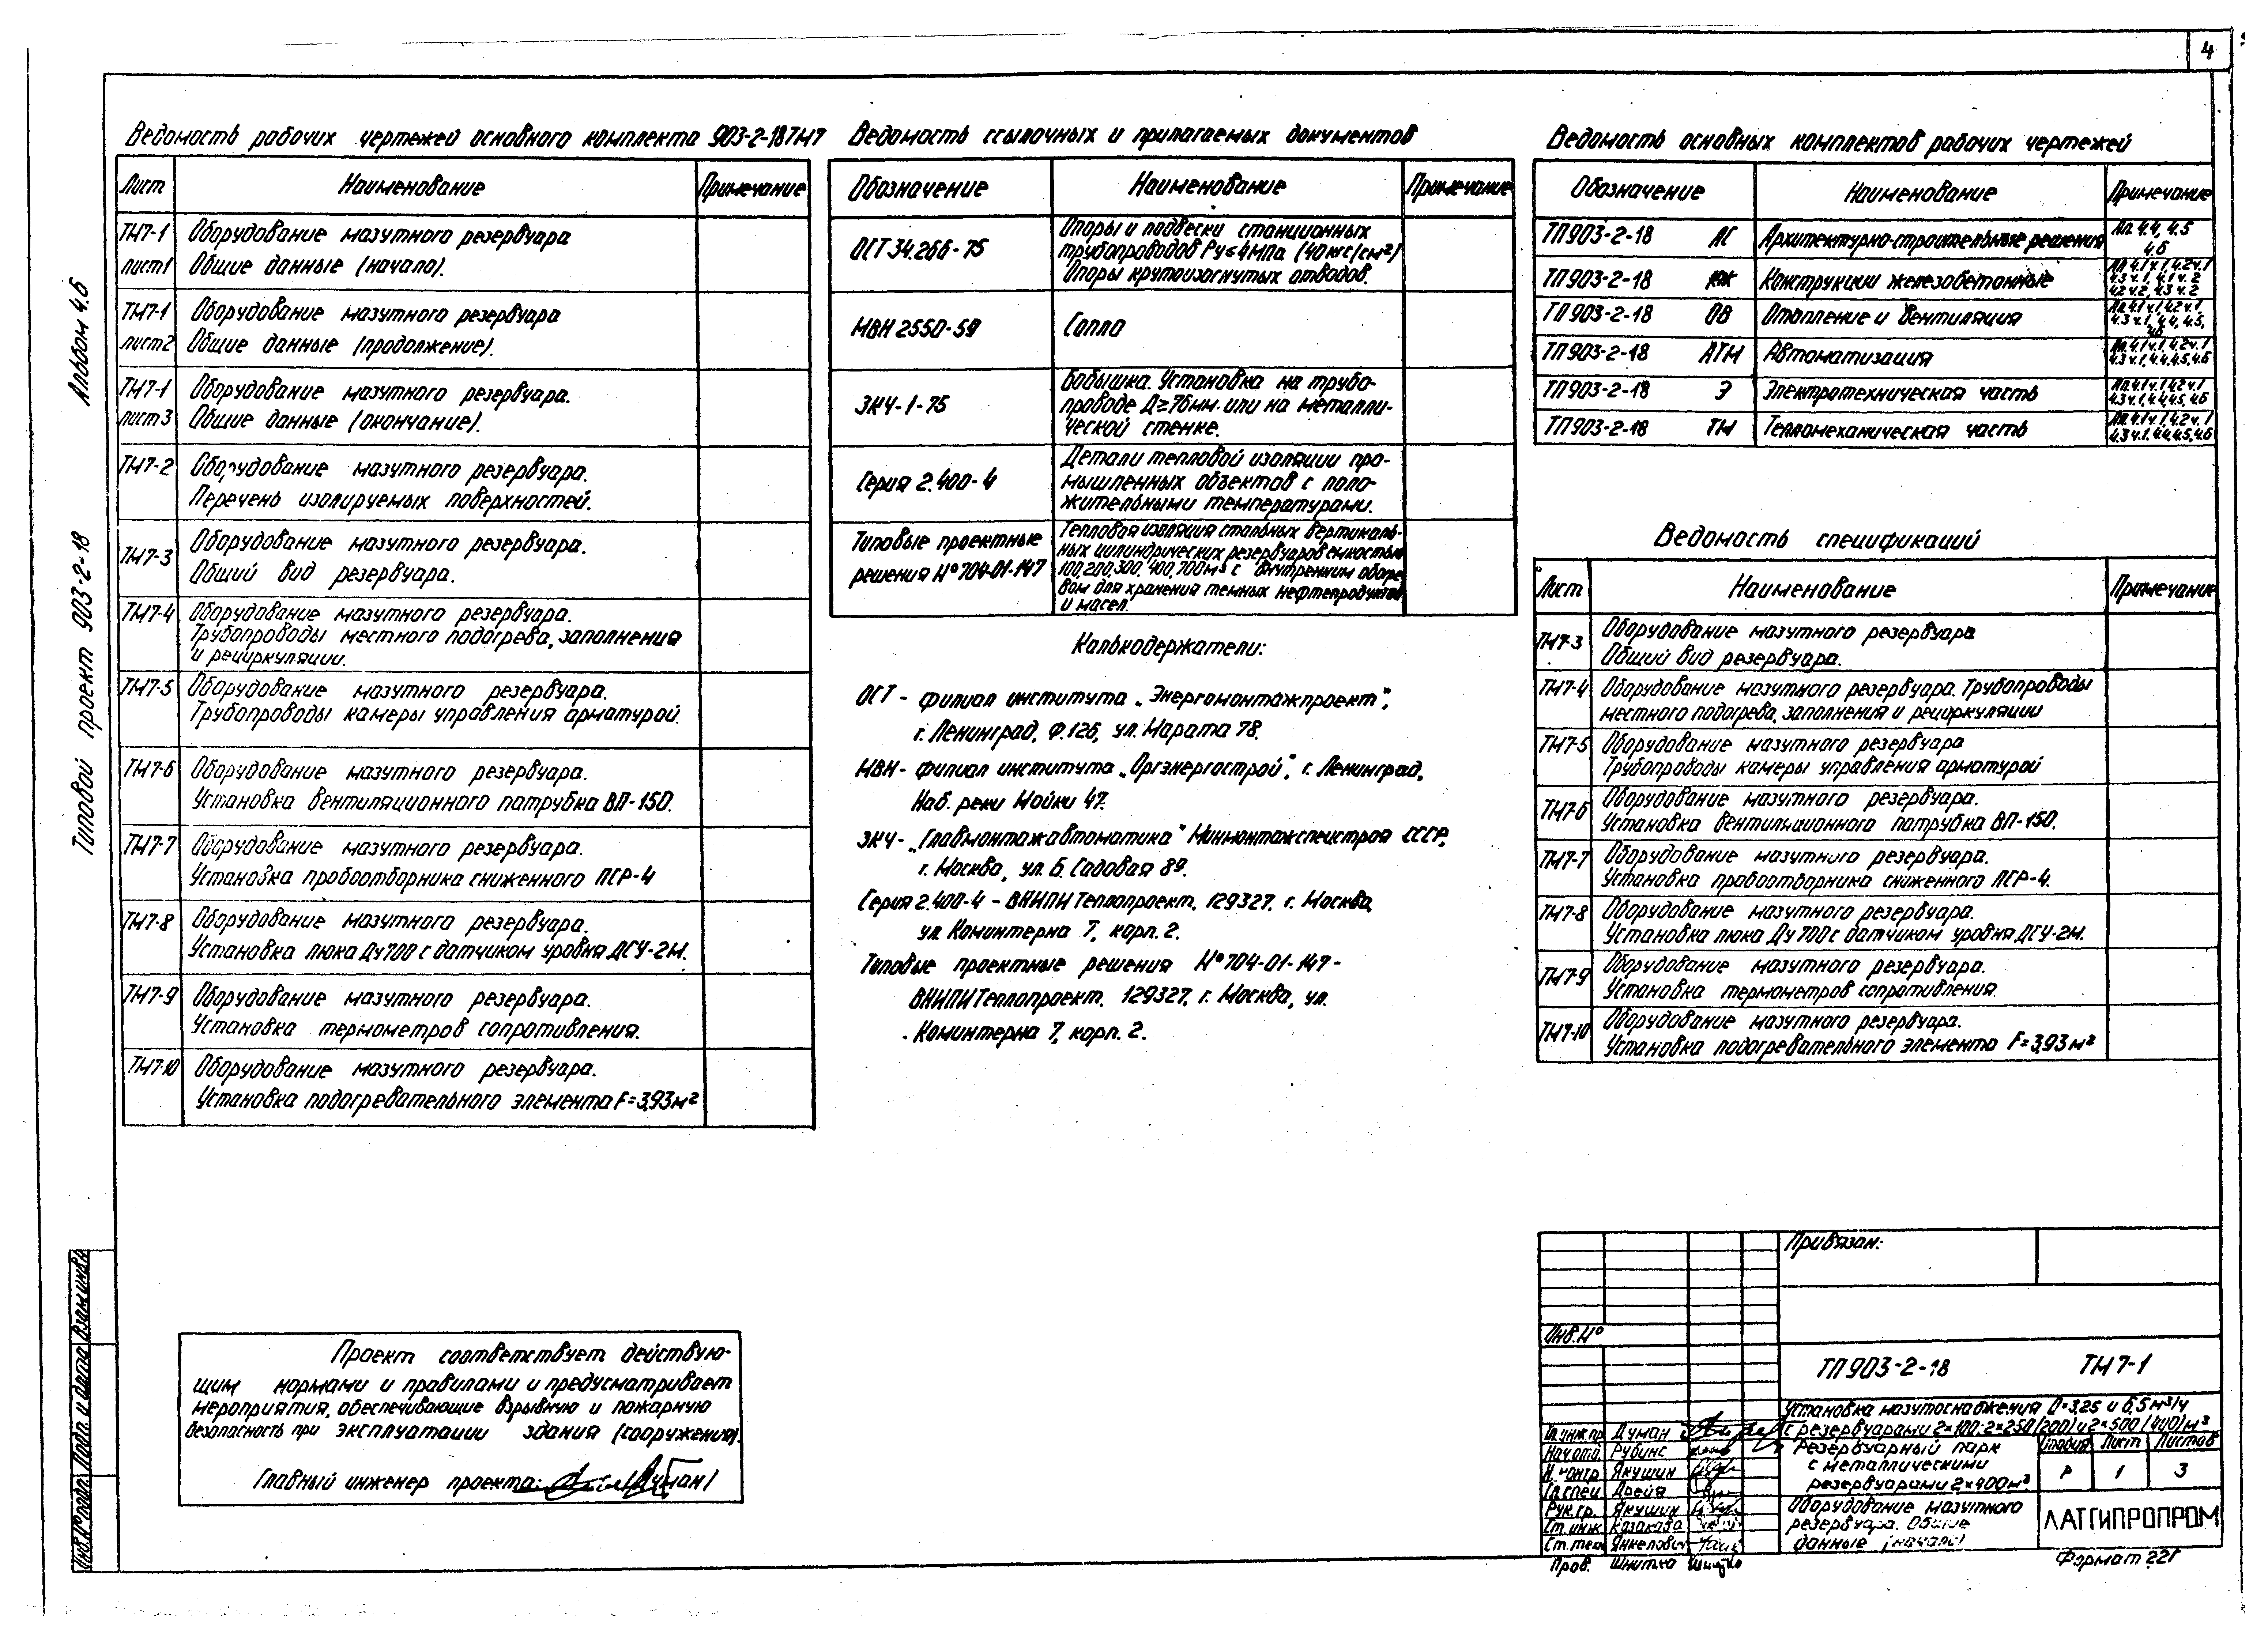 4
Альбом 4.6
Типовой проект 903-2-18
Ведомость рабочих чертежей основного комплекта 903-2-18ТМ7
Лист Наименование Примечание
ТМ7-1 Оборудование мазутного резервуара
лист1 Общие данные (начало).
ТМ7-1 Оборудование мазутного резервуара
лист2 Общие данные (продолжение).
ТМ7-1 Оборудование мазутного резервуара.
лист3 Общие данные (окончание).
ТМ7-2 Оборудование мазутного резервуара.
Перечень изолируемых поверхностей.
ТМ7-3 Оборудование мазутного резервуара.
Общий вид резервуара.
ТМ7-4 Оборудование мазутного резервуара.
Трубопроводы местного подогрева, заполнения
и рециркуляции.
ТМ7-5 Оборудование мазутного резервуара.
Трубопроводы камеры управления арматурой.
ТМ7-6 Оборудование мазутного резервуара.
Установка вентиляционного патрубка ВП-150.
ТМ7-7 Оборудование мазутного резервуара.
Установка пробоотборника сниженного ПСР-4
ТМ7-8 Оборудование мазутного резервуара.
Установка люка Ду700 с датчиком уровня ДСУ-2М.
ТМ7-9 Оборудование мазутного резервуара.
Установка термометров сопротивления.
ТМ7-10 Оборудование мазутного резервуара.
Установка подогревательного элемента F=3,93м²
Ведомость ссылочных и прилагаемых документов
Обозначение Наименование Примечание
ОСТ 34.266-75 Опоры и подвески станционных
трубопроводов Ру≤4МПа (40кгс/см²)
Опоры крутоизогнутых отводов.
МВН 2550-59 Сопло
ЗКЧ-1-75 Бобышка. Установка на трубо-
проводе Д≥76мм. или на металли-
ческой стенке.
Серия 2.400-4 Детали тепловой изоляции про-
мышленных объектов с поло-
жительными температурами.
Типовые проектные
решения №704-01-147
Тепловая изоляция стальных вертикаль-
ных цилиндрических резервуаров емкостью
100,200,300,400,700м³ с внутренним обогре-
вом для хранения темных нефтепродуктов
и масел.
Калькодержатели:
ОСТ - филиал института „Энергомонтажпроект",
г. Ленинград, Ф.126, ул. Марата 78.
МВН - филиал института „Оргэнергострой", г. Ленинград,
Наб. реки Мойки 47.
ЗКЧ- „Главмонтажавтоматика" Минмонтажспецстроя СССР,
г. Москва, ул. Б. Садовая 89.
Серия 2.400-4 - ВНИПИ Теплопроект. 129327, г. Москва,
ул. Коминтерна 7, корп. 2.
Типовые проектные решения №704-01-147-
ВНИПИ Теплопроект. 129327, г. Москва, ул.
Коминтерна 7, корп. 2.
Ведомость основных комплектов рабочих чертежей
Обозначение Наименование Примечание
ТП903-2-18 АС Архитектурно-строительные решения Ал. 4.4, 4.5
4.6
ТП903-2-18 КЖ Конструкции железобетонные Ал 4.1 ч.1, 4.2 ч.1
4.3 ч.1, 4.1 ч.2
4.2 ч.2, 4.3 ч.2
ТП903-2-18 ОВ Отопление и вентиляция Ал. 4.1 ч.1, 4.2 ч.1,
4.3 ч.1, 4.4, 4.5,
4.6
ТП903-2-18 АТМ Автоматизация Ал. 4.1 ч.1, 4.2 ч.1
4.3 ч.1, 4.4, 4.5, 4.6
ТП903-2-18 Э Электротехническая часть Ал. 4.1 ч.1 4.2 ч.1
4.3 ч.1, 4.4, 4.5, 4.6
ТП903-2-18 ТМ Тепломеханическая часть Ал. 4.1 ч.1, 4.2 ч.1
4.3 ч.1, 4.4, 4.5, 4.6
Ведомость спецификаций
Лист Наименование Примечание
ТМ7-3 Оборудование мазутного резервуара
Общий вид резервуара.
ТМ7-4 Оборудование мазутного резервуара. Трубопроводы
местного подогрева, заполнения и рециркуляции
ТМ7-5 Оборудование мазутного резервуара
Трубопроводы камеры управления арматурой
ТМ7-6 Оборудование мазутного резервуара.
Установка вентиляционного патрубка ВП-150.
ТМ7-7 Оборудование мазутного резервуара.
Установка пробоотборника сниженного ПСР-4.
ТМ7-8 Оборудование мазутного резервуара.
Установка люка Ду700 с датчиком уровня ДСУ-2М.
ТМ7-9 Оборудование мазутного резервуара.
Установка термометров сопротивления.
ТМ7-10 Оборудование мазутного резервуара.
Установка подогревательного элемента F=3,93м²
Проект соответствует действую-
щим нормами и правилами и предусматривает
мероприятия, обеспечивающие взрывную и пожарную
безопасность при эксплуатации здания (сооружения).
Главный инженер проекта:
Инв.№подл. Подп. и дата Взам.инв.№
Привязан:
Инв.№
ТП903-2-18 ТМ7-1
Установка мазутоснабжения Q=3,25 и 6,5м³/ч
с резервуарами 2×100; 2×250(200) и 2×500(400)м³
Гл.инж.пр. Думан
Нач.отд. Рубинс
Н.контр. Якушин
Гл.спец. Дрейя
Рук.гр. Якушин
Ст.инж. Казакова
Ст.техн. Янкелович
Пров. Шнитко
Резервуарный парк
с металлическими
резервуарами 2×400м³
Стадия Лист Листов
Р 1 3
Оборудование мазутного
резервуара. Общие
данные (начало)
ЛАТГИПРОПРОМ
Формат 22Г